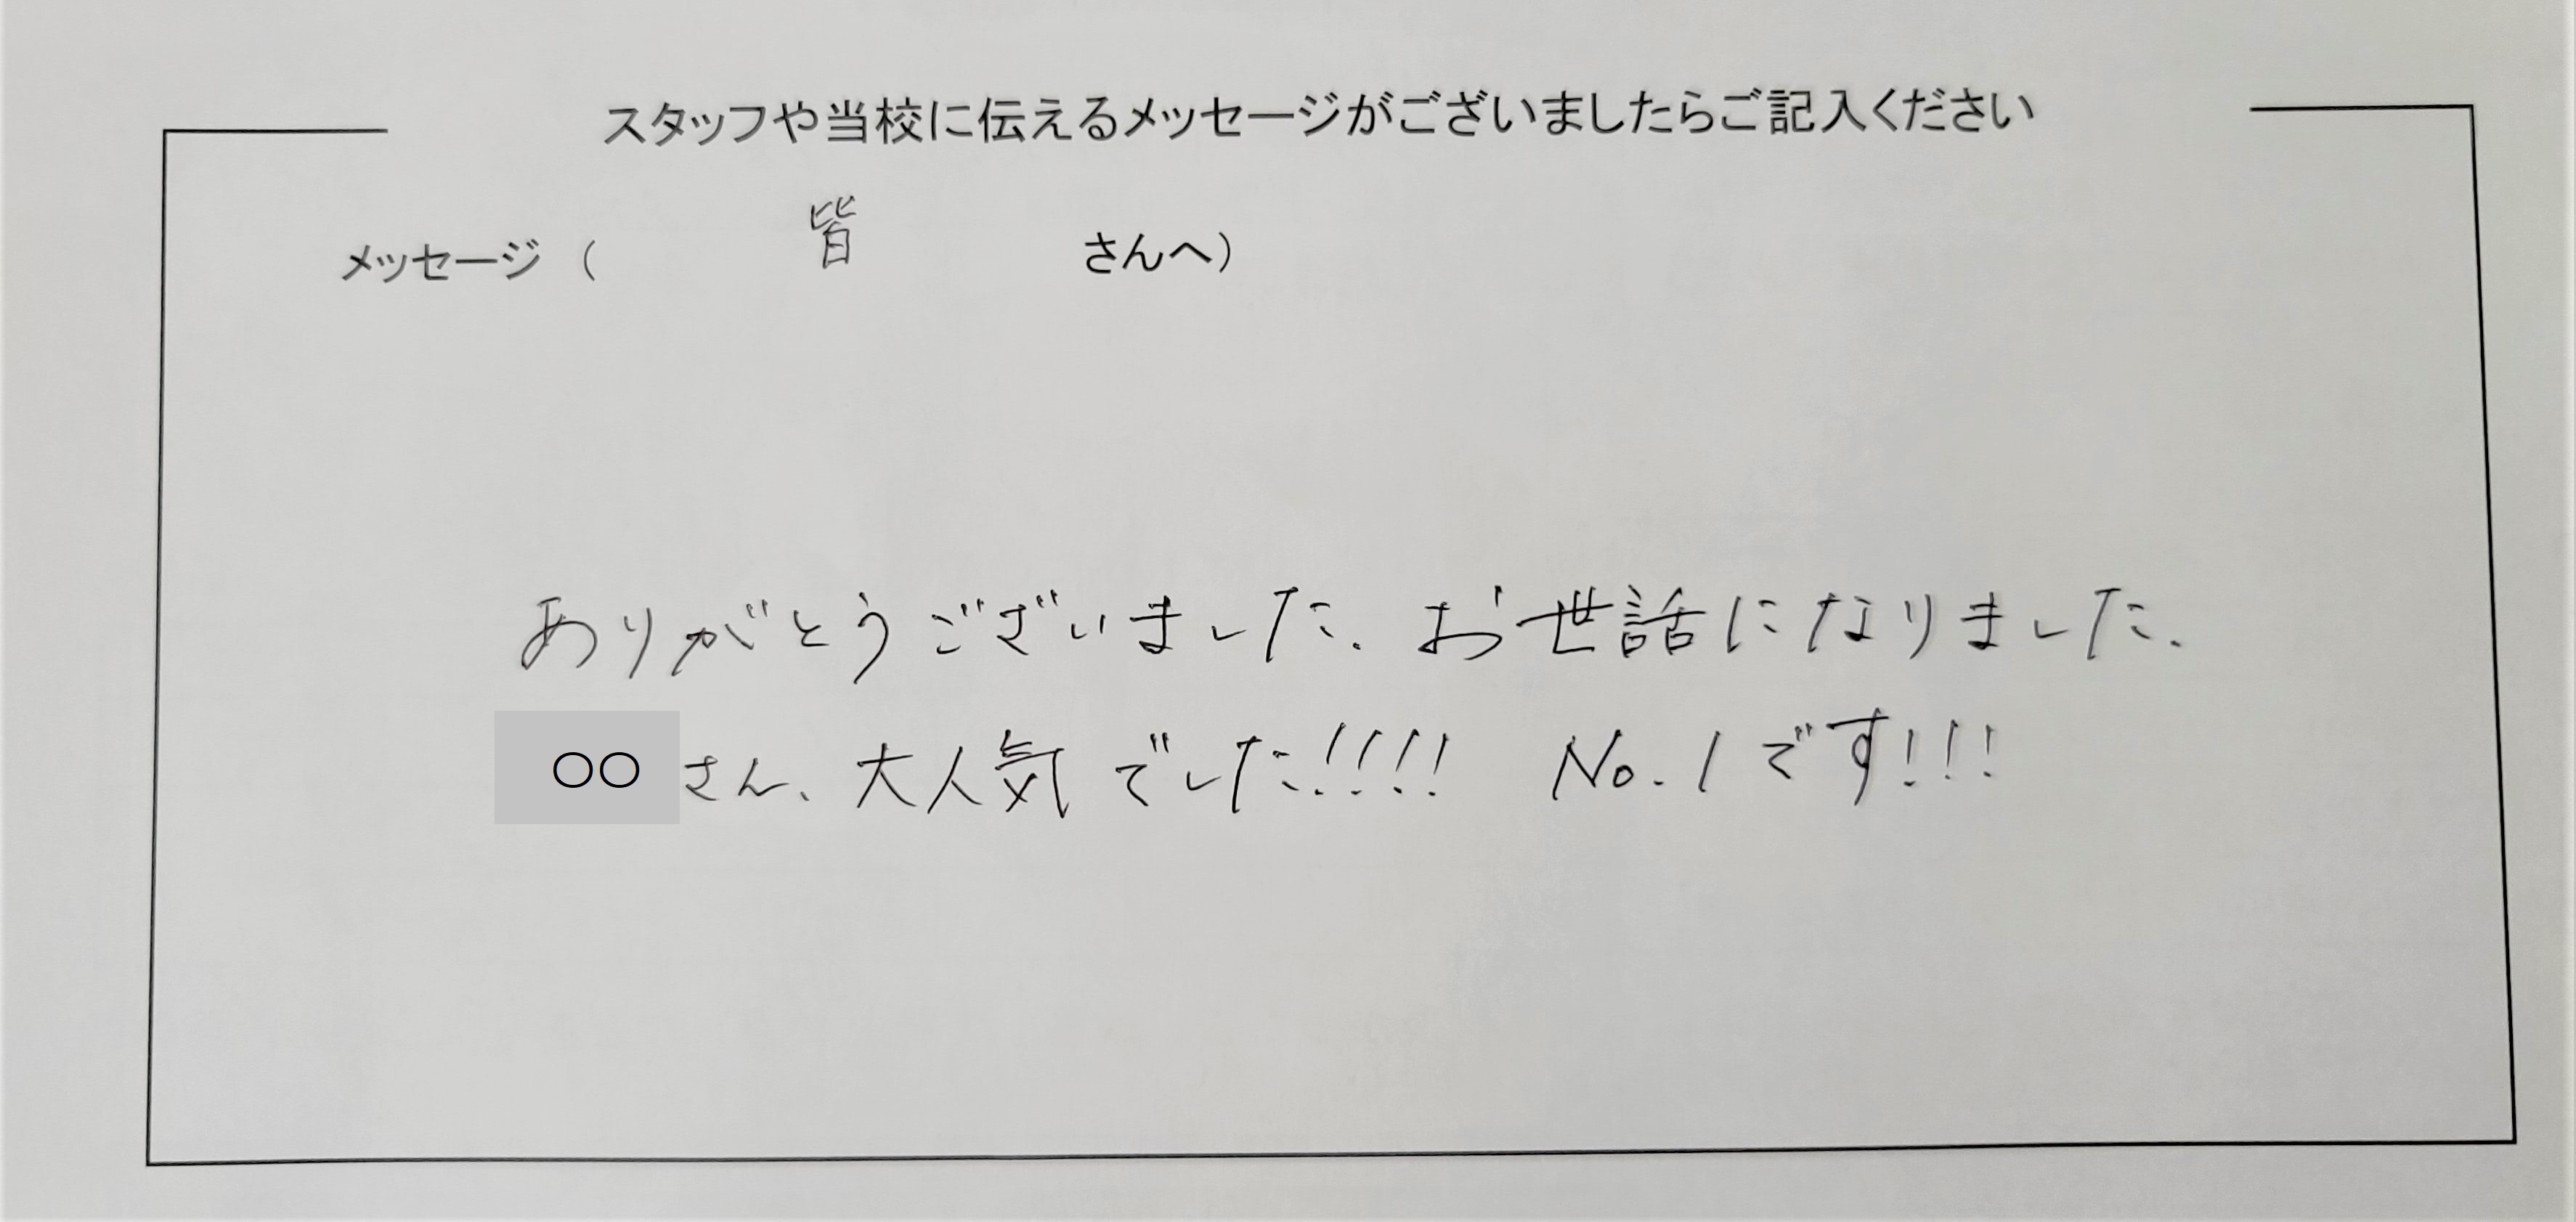 スタッフや当校に伝えるメッセージがございましたらご記入ください
メッセージ（ 皆 さんへ）
ありがとうございました。お世話になりました。
○○さん、大人気でした!!!! No.1です!!!